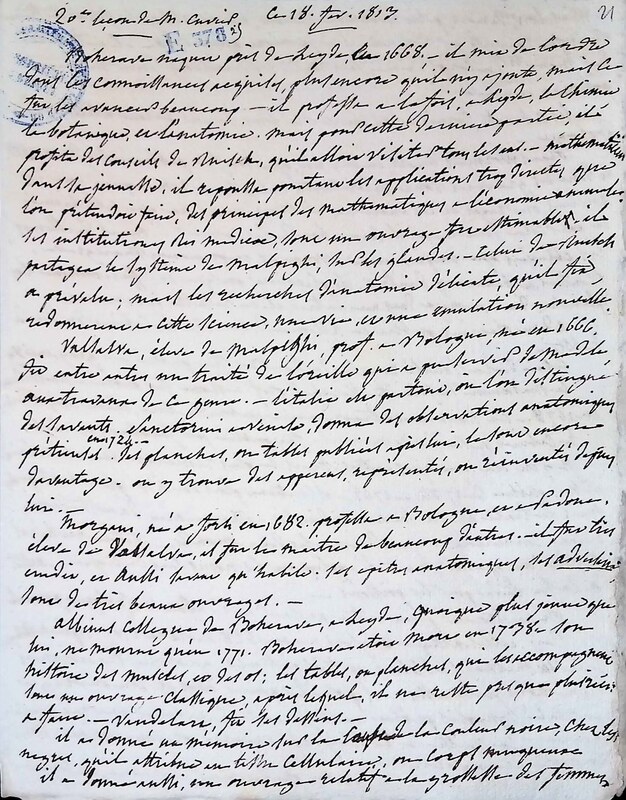 20e leçon de M. Cuvier. Ce 18. fev. 1813.
21
E 378 23
Boherave naquit près de Leyde, en 1668. - il mis de l'ordre
dans les connoissances acquises, plus encore qu'il n'y ajouta, mais ce
fut les avancer beaucoup - il professa a la fois, a Leyde, la Chimie
la botanique, et l'anatomie. mais pour cette derniere partie, il a
profité des conseils de Ruisch, qu'il alloit visiter tous les ans. - mathematicien
dans sa jeunesse, il repoussa pourtant les applications trop directes que
l'on prétendoit faire, des principes des mathematiques a l'économie animale
ses institutiones rei medicae, sont un ouvrage fort estimable, il
partagea le système de Malpighi, sur les glandes. - celui de Ruisch
a prévalu. mais les recherches d'anatomie délicate, qu'il fit
redonnerent a cette science, une vie, et une emulation nouvelle
Valsalva, élève de Malpighi, prof. a Bologne, né en 1666.
fit entre autres un traité de l'oreille qui a pu servir de modele
aux travaux de ce genre. - l'italie est partout, où l'on distingue
des savants. Santorini a Venise, donna des observations anatomiques
prétieuses en 1724. - des planches, ou tables publiées après lui, le sont encore
davantage. on y trouve des apperçus, représentés, ou réinventés depuis
lui.
Morgani, né a forli en 1682. professa a Bologne, et a Padoue.
élève de Valsalva, il fut le maitre de beaucoup d'autres. - il fut très
erudit, et aussi savant qu'habile. ses epitres anatomiques, ses adversaria
sont de très beaux ouvrages. -
albinus collegue de Boherave, a Leyde, quoique plus jeune que
lui, ne mourut qu'en 1771. Boherave etoit mort en 1738. son
histoire des muscles, et des os; les tables, ou planches, qui les accompagnent
sont un ouvrage classique, après lequel, il ne reste presque plus rien
a faire. - Vandelaar, fit ses dessins. -
il a donné un mémoire sur la cause de la couleur noire, chez les
negres, qu'il attribue au tissu cellulaire, ou corps muqueux
il a donné aussi, un ouvrage relatif a la grossesse des femmes